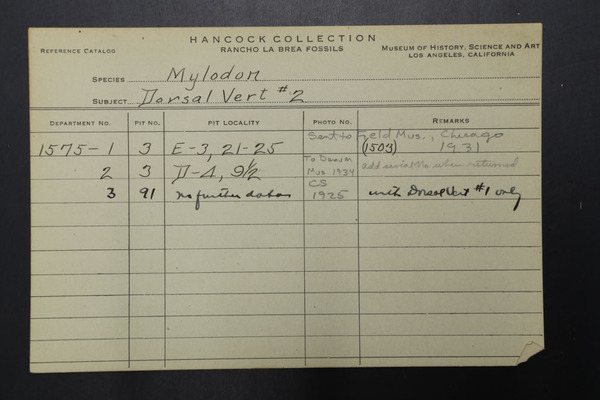 HANCOCK COLLECTION
REFERENCE CATALOG RANCHO LA BREA FOSSILS MUSEUM OF HISTORY, SCIENCE AND ART
LOS ANGELES, CALIFORNIA
SPECIES Mylodon
SUBJECT Dorsal Vert #2
DEPARTMENT NO. PIT NO. PIT LOCALITY PHOTO NO. REMARKS
Sent to Field Mus., Chicago
1575-1 3 E-3, 21-25 (1503) 1931
To Denver add serial No when returned
2 3 D-4, 9½ Mus 1934
CS
3 91 no further data 1925 with Dorsal Vert #1 only